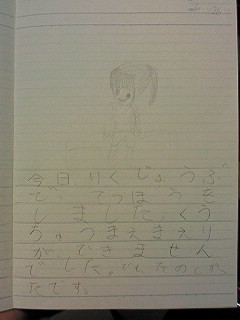 今日、りくじょうぶ
で、てつぼうを
しました。くう
ちゅうまえまえり
が、できません
でした。でも、たのしかっ
たです。